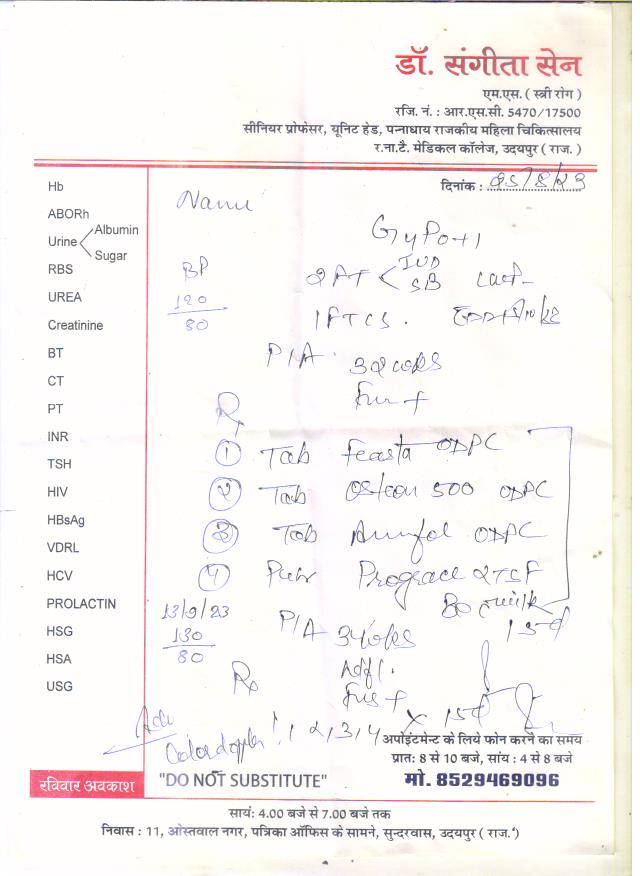 डॉ. संगीता सेन
एम.एस. ( स्त्री रोग )
रजि. नं. : आर.एस.सी. 5470/17500
सीनियर प्रोफेसर, यूनिट हेड, पन्नाधाय राजकीय महिला चिकित्सालय
र.ना.टै. मेडिकल कॉलेज, उदयपुर ( राज. )
दिनांक : 25/8/23
Hb
ABORh
Urine Albumin
Sugar
RBS
UREA
Creatinine
BT
CT
PT
INR
TSH
HIV
HBsAg
VDRL
HCV
PROLACTIN
HSG
HSA
USG
BP
120
80
2 FT IUD
SB
1 FTCS.
P/A 32 wks
Rx
1 Tab ODPC
2 Tab 500 ODPC
3 Tab ODPC
4 2TSF
milk
13/9/23
130
80
P/A 34 wks
Rx
Adv
Color doppler 1, 2, 3, 4 x
अपोइंटमेन्ट के लिये फोन करने का समय
प्रातः 8 से 10 बजे, सांय : 4 से 8 बजे
रविवार अवकाश "DO NOT SUBSTITUTE" मो. 8529469096
सायं: 4.00 बजे से 7.00 बजे तक
निवास : 11, ओस्तवाल नगर, पत्रिका ऑफिस के सामने, सुन्दरवास, उदयपुर ( राज.)